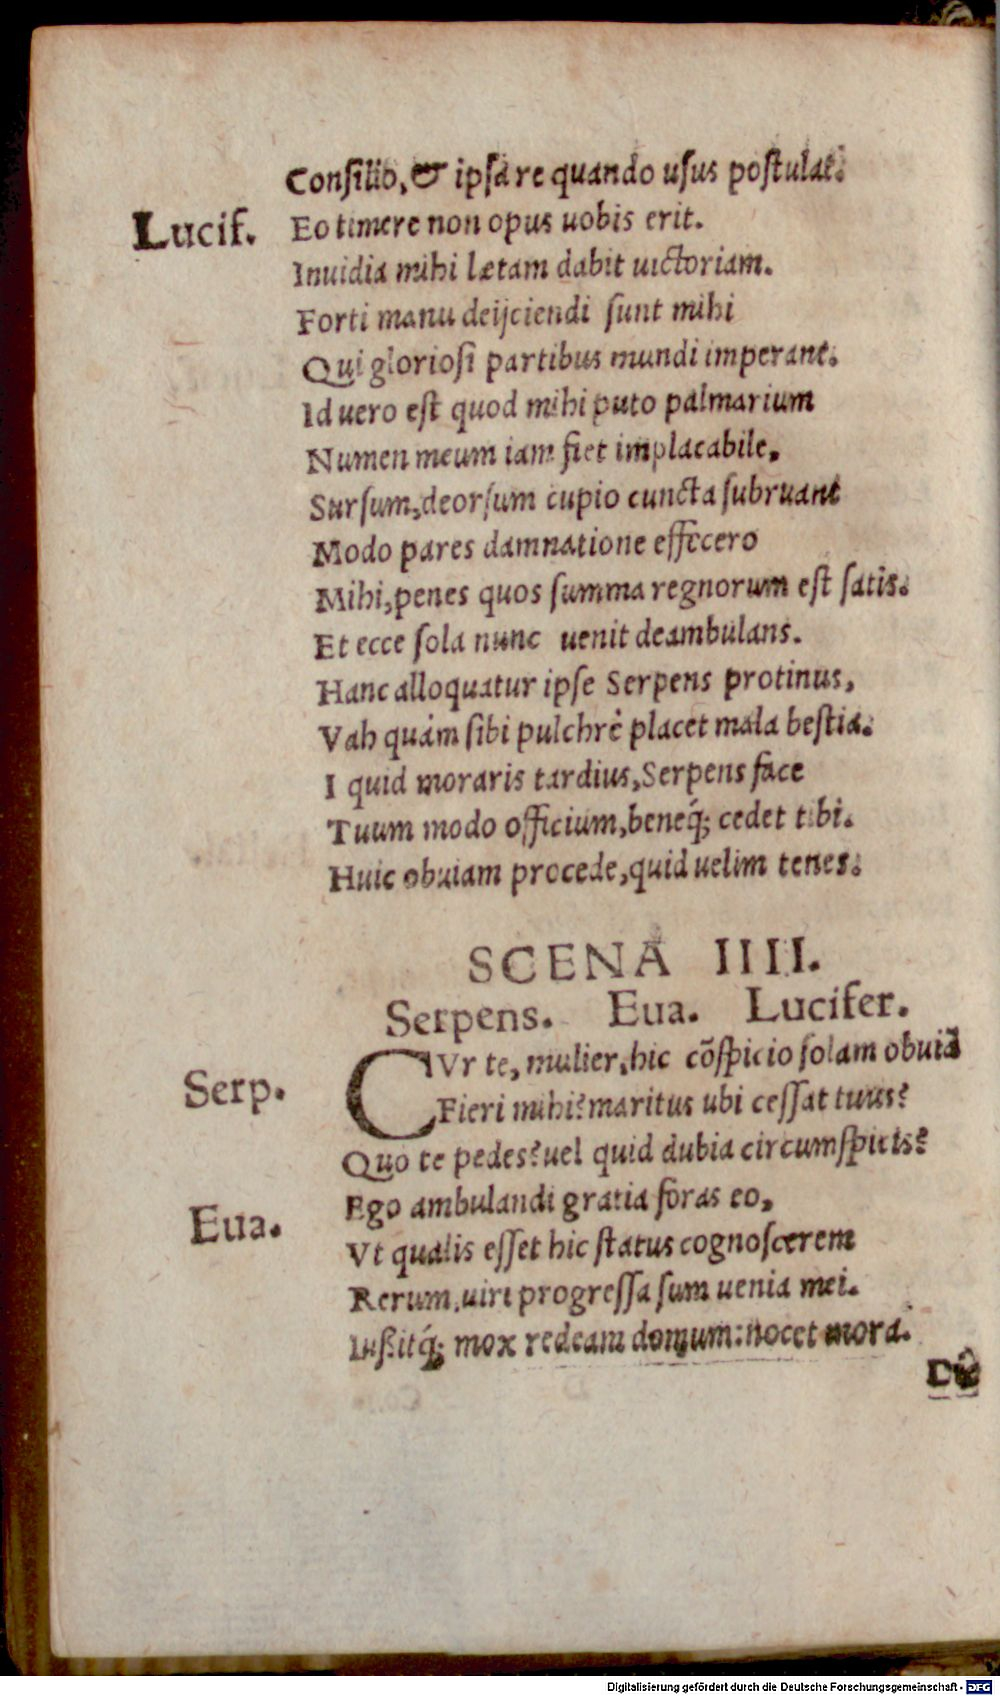 Consilio, & ipsa re quando usus postulat.
Lucif. Eo timere non opus uobis erit.
Inuidia mihi lætam dabit uictoriam.
Forti manu deijciendi sunt mihi
Qui gloriosi partibus mundi imperant.
Id uero est quod mihi puto palmarium
Numen meum iam fiet implacabile,
Sursum, deorsum cupio cuncta subruant
Modo pares damnatione effecero
Mihi, penes quos summa regnorum est satis.
Et ecce sola nunc uenit deambulans.
Hanc alloquatur ipse Serpens protinus,
Vah quàm sibi pulchrè placet mala bestia.
I quid moraris tardius, Serpens face
Tuum modo officium, beneq́; cedet tibi.
Huic obuiam procede, quid uelim tenes.
SCENA IIII.
Serpens. Eua. Lucifer.
Serp. CVr te, mulier, hic cõspicio solam obuiã
Fieri mihi? maritus ubi cessat tuus?
Quo te pedes? uel quid dubia circumspicis?
Eua. Ego ambulandi gratia foras eo,
Vt qualis esset hic status cognoscerem
Rerum, uiri progressa sum uenia mei.
Iußitq́; mox redeam domum: nocet mora.
Digitalisierung gefördert durch die Deutsche Forschungsgemeinschaft - DFG